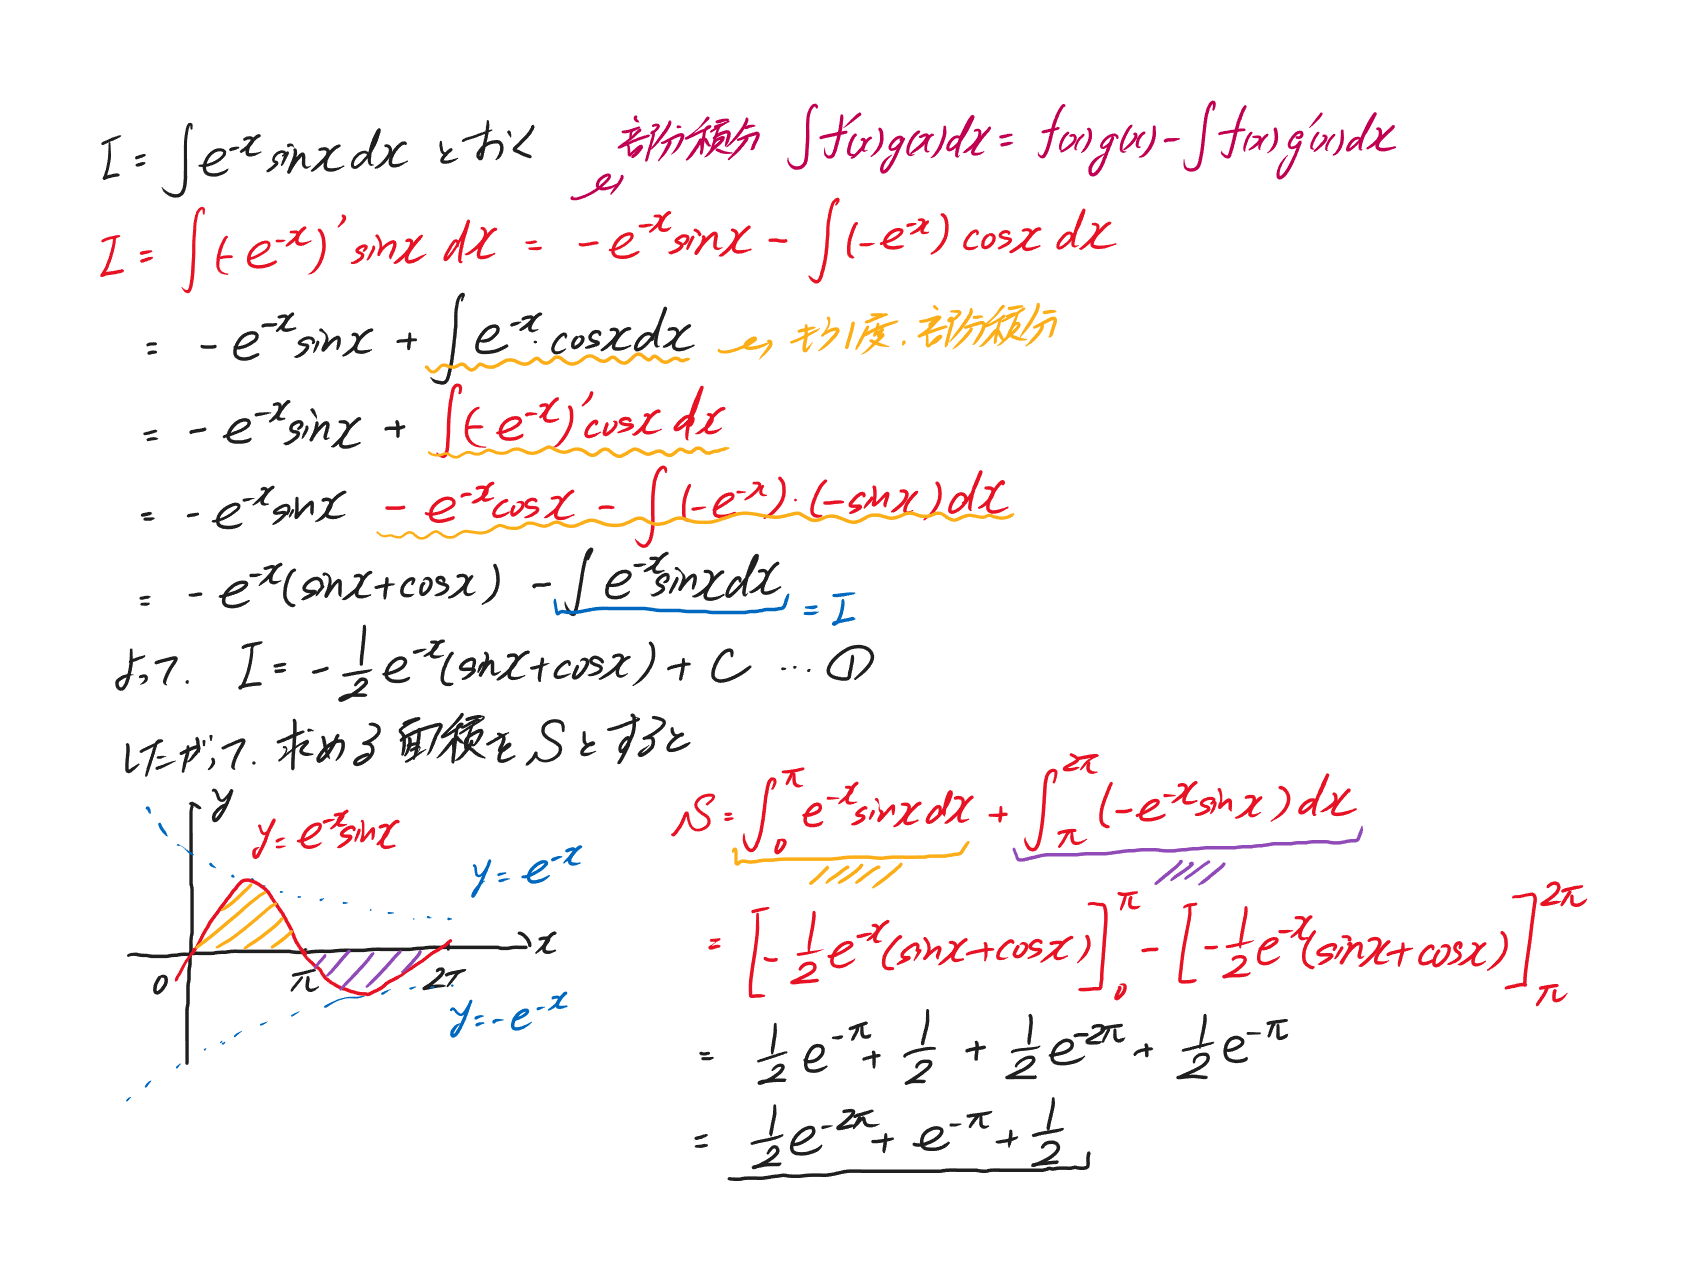 I = ∫e^{-x} sinx dx とおく 部分積分 ∫f'(x)g(x)dx = f(x)g(x) - ∫f(x)g'(x)dx
I = ∫(-e^{-x})' sinx dx = -e^{-x}sinx - ∫(-e^{-x}) cosx dx
= -e^{-x}sinx + ∫e^{-x}·cosxdx もう1度.部分積分
= -e^{-x}sinx + ∫(-e^{-x})'cosx dx
= -e^{-x}sinx -e^{-x}cosx - ∫(-e^{-x})·(-sinx)dx
= -e^{-x}(sinx+cosx) - ∫e^{-x}sinxdx = I
よって. I = -\frac{1}{2}e^{-x}(sinx+cosx) + C … ①
したがって.求める面積をSとすると
y
y=e^{-x}sinx
y=e^{-x}
x
0
π
2π
y=-e^{-x}
S = ∫_0^π e^{-x}sinxdx + ∫_π^{2π}(-e^{-x}sinx)dx
= [-\frac{1}{2}e^{-x}(sinx+cosx)]_0^π - [-\frac{1}{2}e^{-x}(sinx+cosx)]_π^{2π}
= \frac{1}{2}e^{-π} + \frac{1}{2} + \frac{1}{2}e^{-2π} + \frac{1}{2}e^{-π}
= \frac{1}{2}e^{-2π} + e^{-π} + \frac{1}{2}